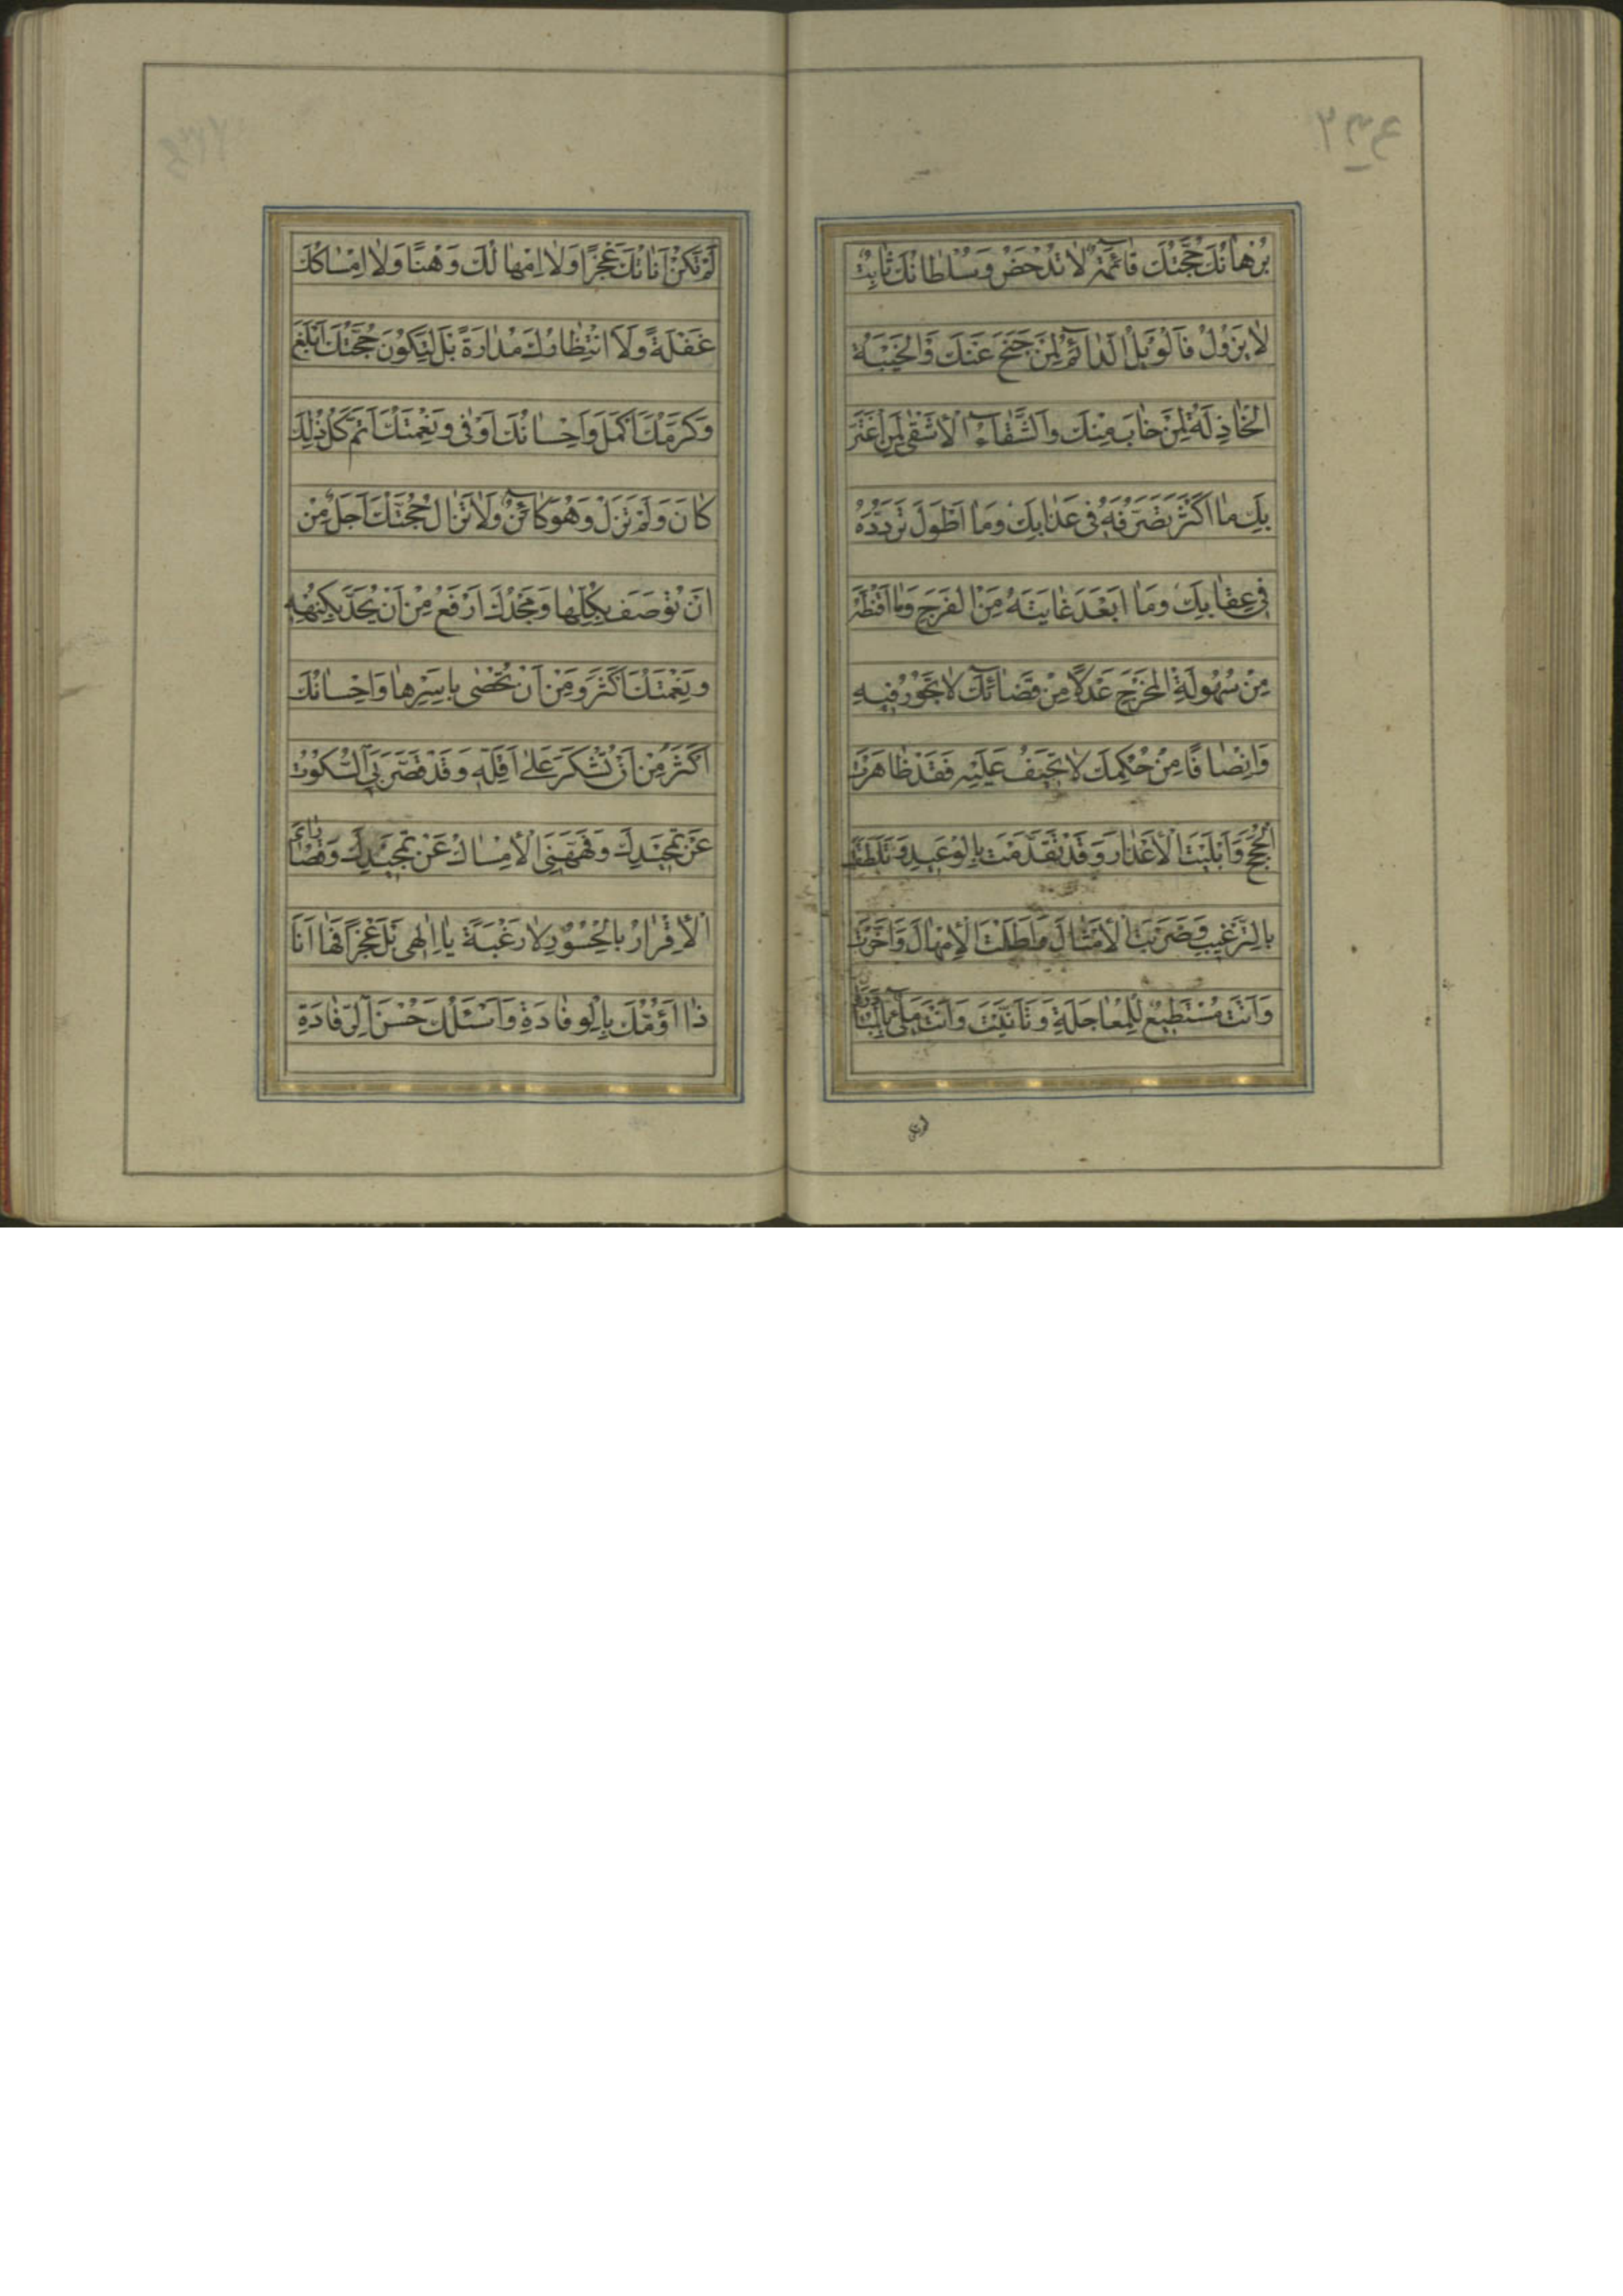 بُرْهانُكَ حُجَّتُكَ قائِمَةٌ لا تُدْحَضُ وَسُلْطانُكَ ثابِتٌ
لا يَزُولُ فَالْوَيْلُ الدّائِمُ لِمَنْ جَنَحَ عَنْكَ وَالْخَيْبَةُ
الْخاذِلَةُ لِمَنْ خابَ مِنْكَ وَالشَّقاءُ الْأَشْقى لِمَنِ اغْتَرَّ
بِكَ ما اَكْثَرَ تَصَرُّفَهُ فى عَذابِكَ وَما اَطْوَلَ تَرَدُّدَهُ
فى عِقابِكَ وَما اَبْعَدَ غايَتَهُ مِنَ الْفَرَجِ وَما اَقْنَطَهُ
مِنْ سُهُولَةِ الْمَخْرَجِ عَدْلاً مِنْ قَضائِكَ لا تَجُورُ فيهِ
وَاِنْصافًا مِنْ حُكْمِكَ لا تَحيفُ عَلَيْهِ فَقَدْ ظاهَرْتَ
الْحُجَجَ وَاَبْلَيْتَ الْأَعْذارَ وَقَدْ تَقَدَّمْتَ بِالْوَعيدِ وَتَلَطَّفْتَ
بِالتَّرْغيبِ وَضَرَبْتَ الْأَمْثالَ وَاَطَلْتَ الْاِمْهالَ وَاَخَّرْتَ
وَاَنْتَ مُسْتَطيعٌ لِلْمُعاجَلَةِ وَتَاَنَّيْتَ وَاَنْتَ مَلِئٌ بِالْمُبادَرَةِ
لَمْ تَكُنْ اَناتُكَ عَجْزًا وَلا اِمْهالُكَ وَهْنًا وَلا اِمْساكُكَ
غَفْلَةً وَلَا انْتِظارُكَ مُداراةً بَلْ لِتَكُونَ حُجَّتُكَ اَبْلَغَ
وَكَرَمُكَ اَكْمَلَ وَاِحْسانُكَ اَوْفى وَنِعْمَتُكَ اَتَمَّ كُلُّ ذٰلِكَ
كانَ وَلَمْ تَزَلْ وَهُوَ كائِنٌ وَلا تَزالُ حُجَّتُكَ اَجَلُّ مِنْ
اَنْ تُوصَفَ بِكُلِّها وَمَجْدُكَ اَرْفَعُ مِنْ اَنْ يُحَدَّ بِكُنْهِهِ
وَنِعْمَتُكَ اَكْثَرُ مِنْ اَنْ تُحْصى بِاَسْرِها وَاِحْسانُكَ
اَكْثَرُ مِنْ اَنْ تُشْكَرَ عَلى اَقَلِّهِ وَقَدْ قَصَّرَ بِىَ السُّكُوتُ
عَنْ تَحْميدِكَ وَفَهَّهَنِى الْاِمْساكُ عَنْ تَمْجيدِكَ وَقُصاراىَ
الْاِقْرارُ بِالْحُسُورِ لا رَغْبَةً يا اِلهى بَلْ عَجْزًا فَها اَنَا
ذا اَؤُمُّكَ بِالْوِفادَةِ وَاَسْئَلُكَ حُسْنَ الرِّفادَةِ